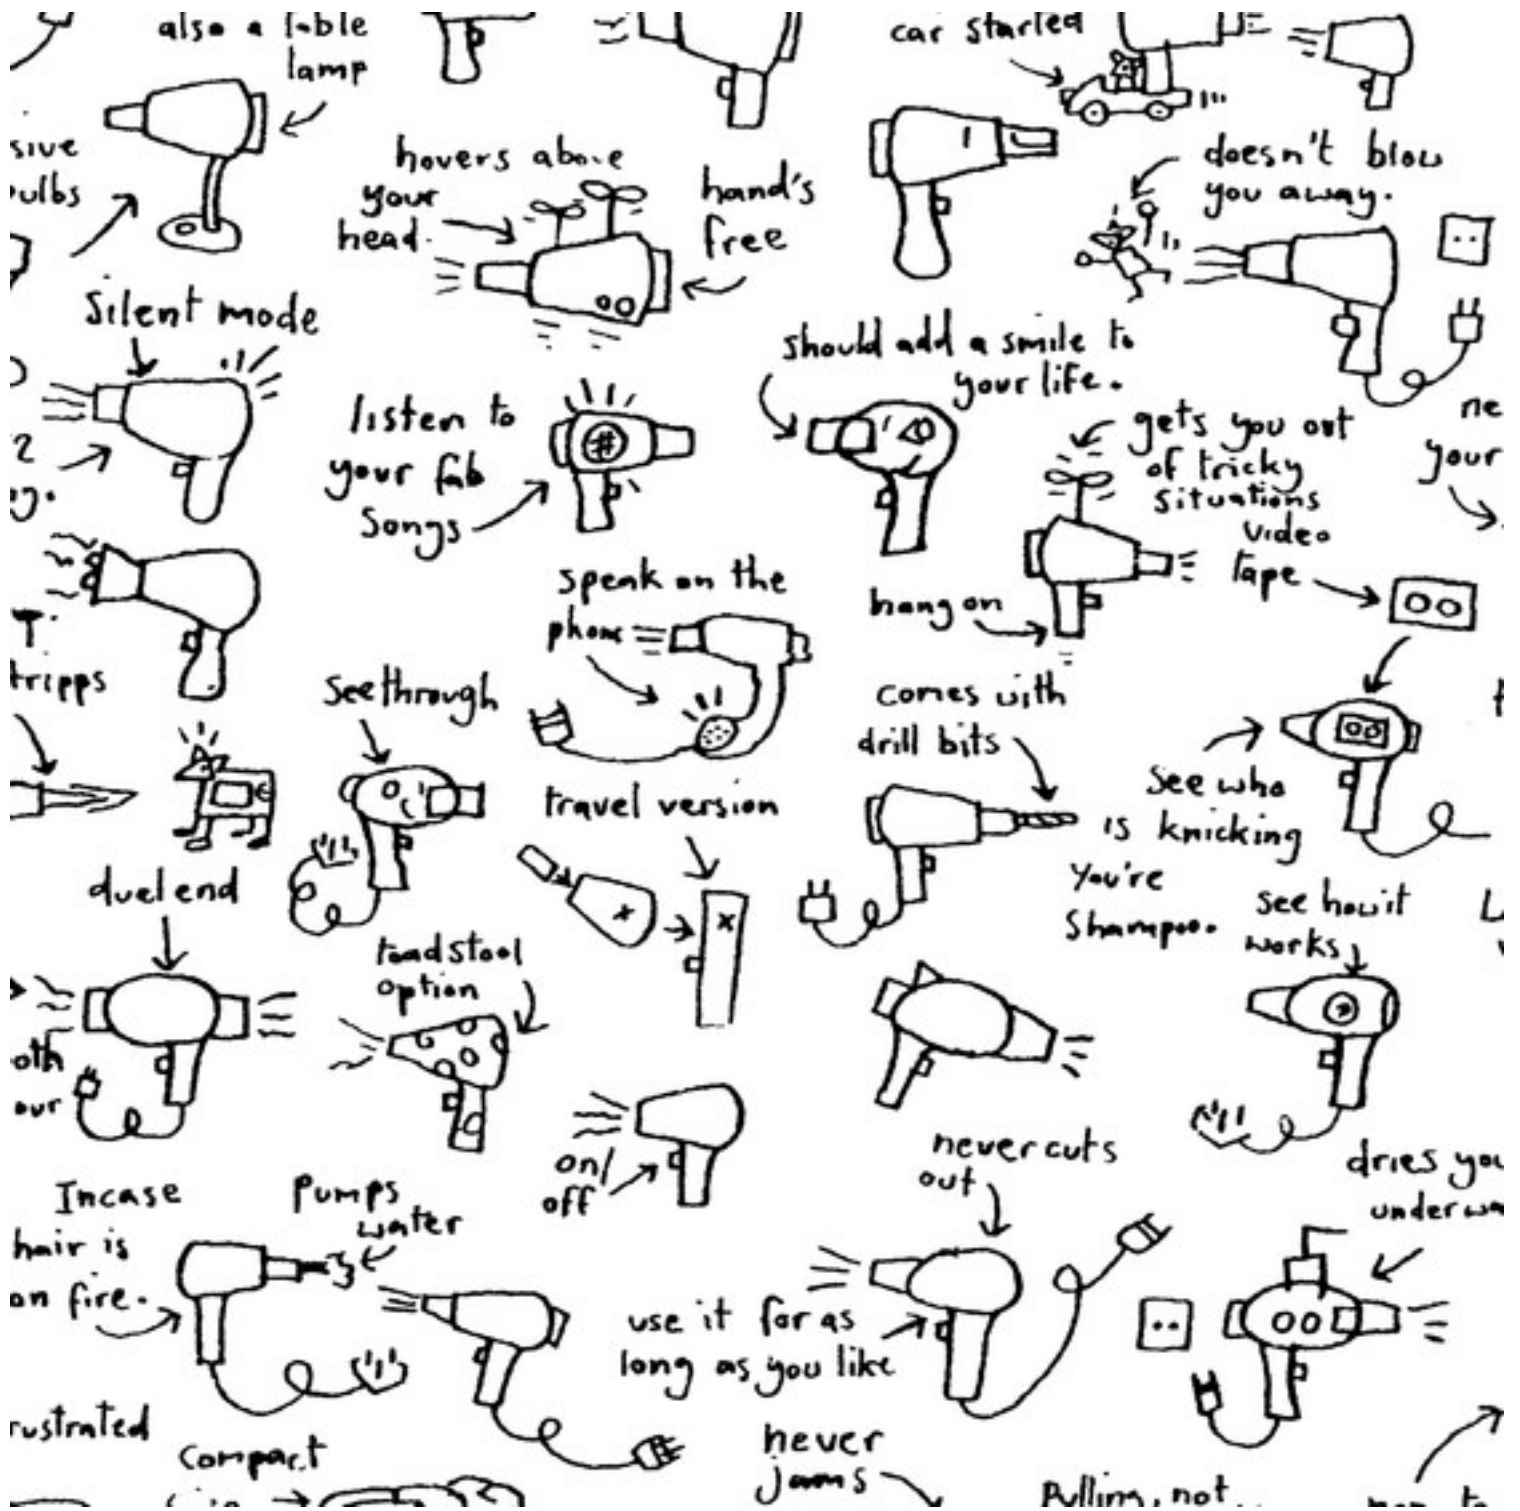 also a table
lamp
car started
sive
ulbs
hovers above
your
head.
hand's
free
doesn't blow
you away.
Silent mode
should add a smile to
your life.
listen to
your fab
songs
gets you out
of tricky
situations
ne
your
2
y.
video
tape
speak on the
phone
hang on
T.
tripps
see through
comes with
drill bits
see who
is knicking
you're
Shampoo.
travel version
duel end
see how it
works
toadstool
option
oth
our
on/
off
never cuts
out
dries you
underwa
Incase
hair is
on fire.
Pumps
water
use it for as
long as you like
rustrated
compact
never
jams
Pulling, not